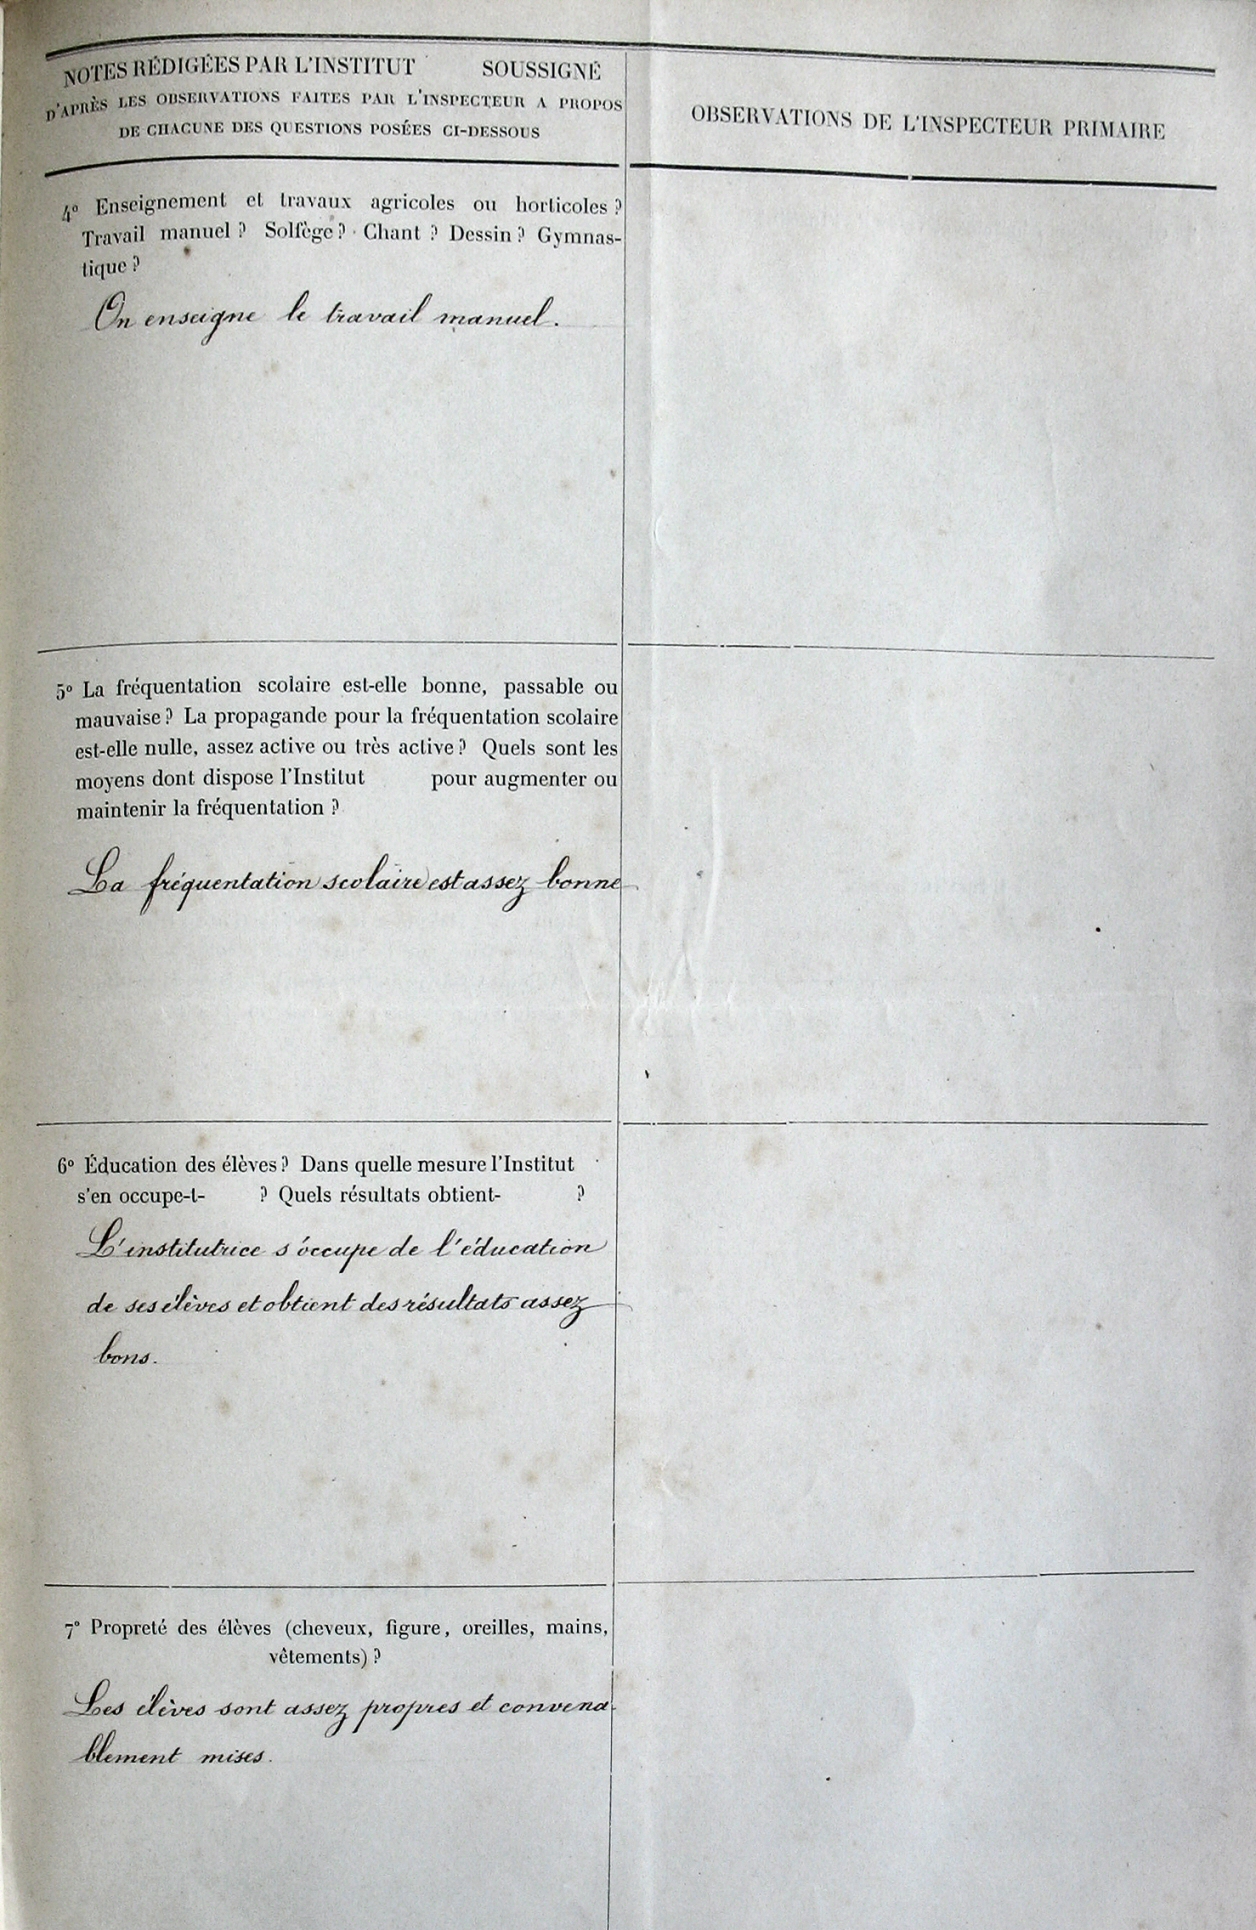 NOTES RÉDIGÉES PAR L'INSTITUT SOUSSIGNÉ
D'APRÈS LES OBSERVATIONS FAITES PAR L'INSPECTEUR A PROPOS
DE CHACUNE DES QUESTIONS POSÉES CI-DESSOUS
OBSERVATIONS DE L'INSPECTEUR PRIMAIRE
4° Enseignement et travaux agricoles ou horticoles ?
Travail manuel ? Solfège ? Chant ? Dessin ? Gymnas-
tique ?
On enseigne le travail manuel.
5° La fréquentation scolaire est-elle bonne, passable ou
mauvaise ? La propagande pour la fréquentation scolaire
est-elle nulle, assez active ou très active ? Quels sont les
moyens dont dispose l'Institut pour augmenter ou
maintenir la fréquentation ?
La fréquentation scolaire est assez bonne
6° Éducation des élèves ? Dans quelle mesure l'Institut
s'en occupe-t- ? Quels résultats obtient- ?
L'institutrice s'occupe de l'éducation
de ses élèves et obtient des résultats assez
bons.
7° Propreté des élèves (cheveux, figure, oreilles, mains,
vêtements) ?
Les élèves sont assez propres et convena-
blement mises.